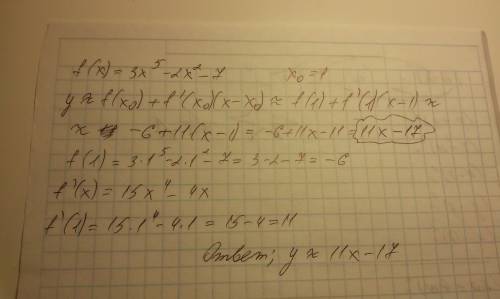 f(x) = 3x⁵ - 2x² - 7 x₀ = 1
y ≈ f(x₀) + f'(x₀)(x - x₀) ≈ f(1) + f'(1)(x - 1) ≈
≈ -6 + 11(x - 1) = -6 + 11x - 11 = 11x - 17
f(1) = 3·1⁵ - 2·1² - 7 = 3 - 2 - 7 = -6
f'(x) = 15x⁴ - 4x
f'(1) = 15·1⁴ - 4·1 = 15 - 4 = 11
Ответ; y ≈ 11x - 17